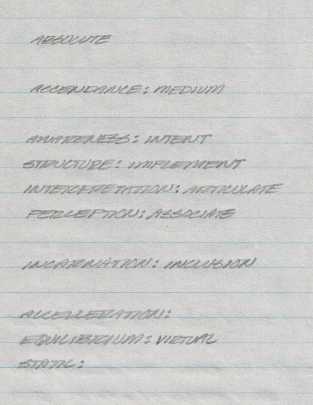 ABSOLUTE
ACCENDANCE: MEDIUM
AWARENESS: INTENT
STRUCTURE: IMPLEMENT
INTERCRETATION: ARTICULATE
PERCEPTION: ASSOCIATE
INCARNATION: INCLUSION
ACCELLERATION:
EQUILIBRIUM: VIRTUAL
STATIC: